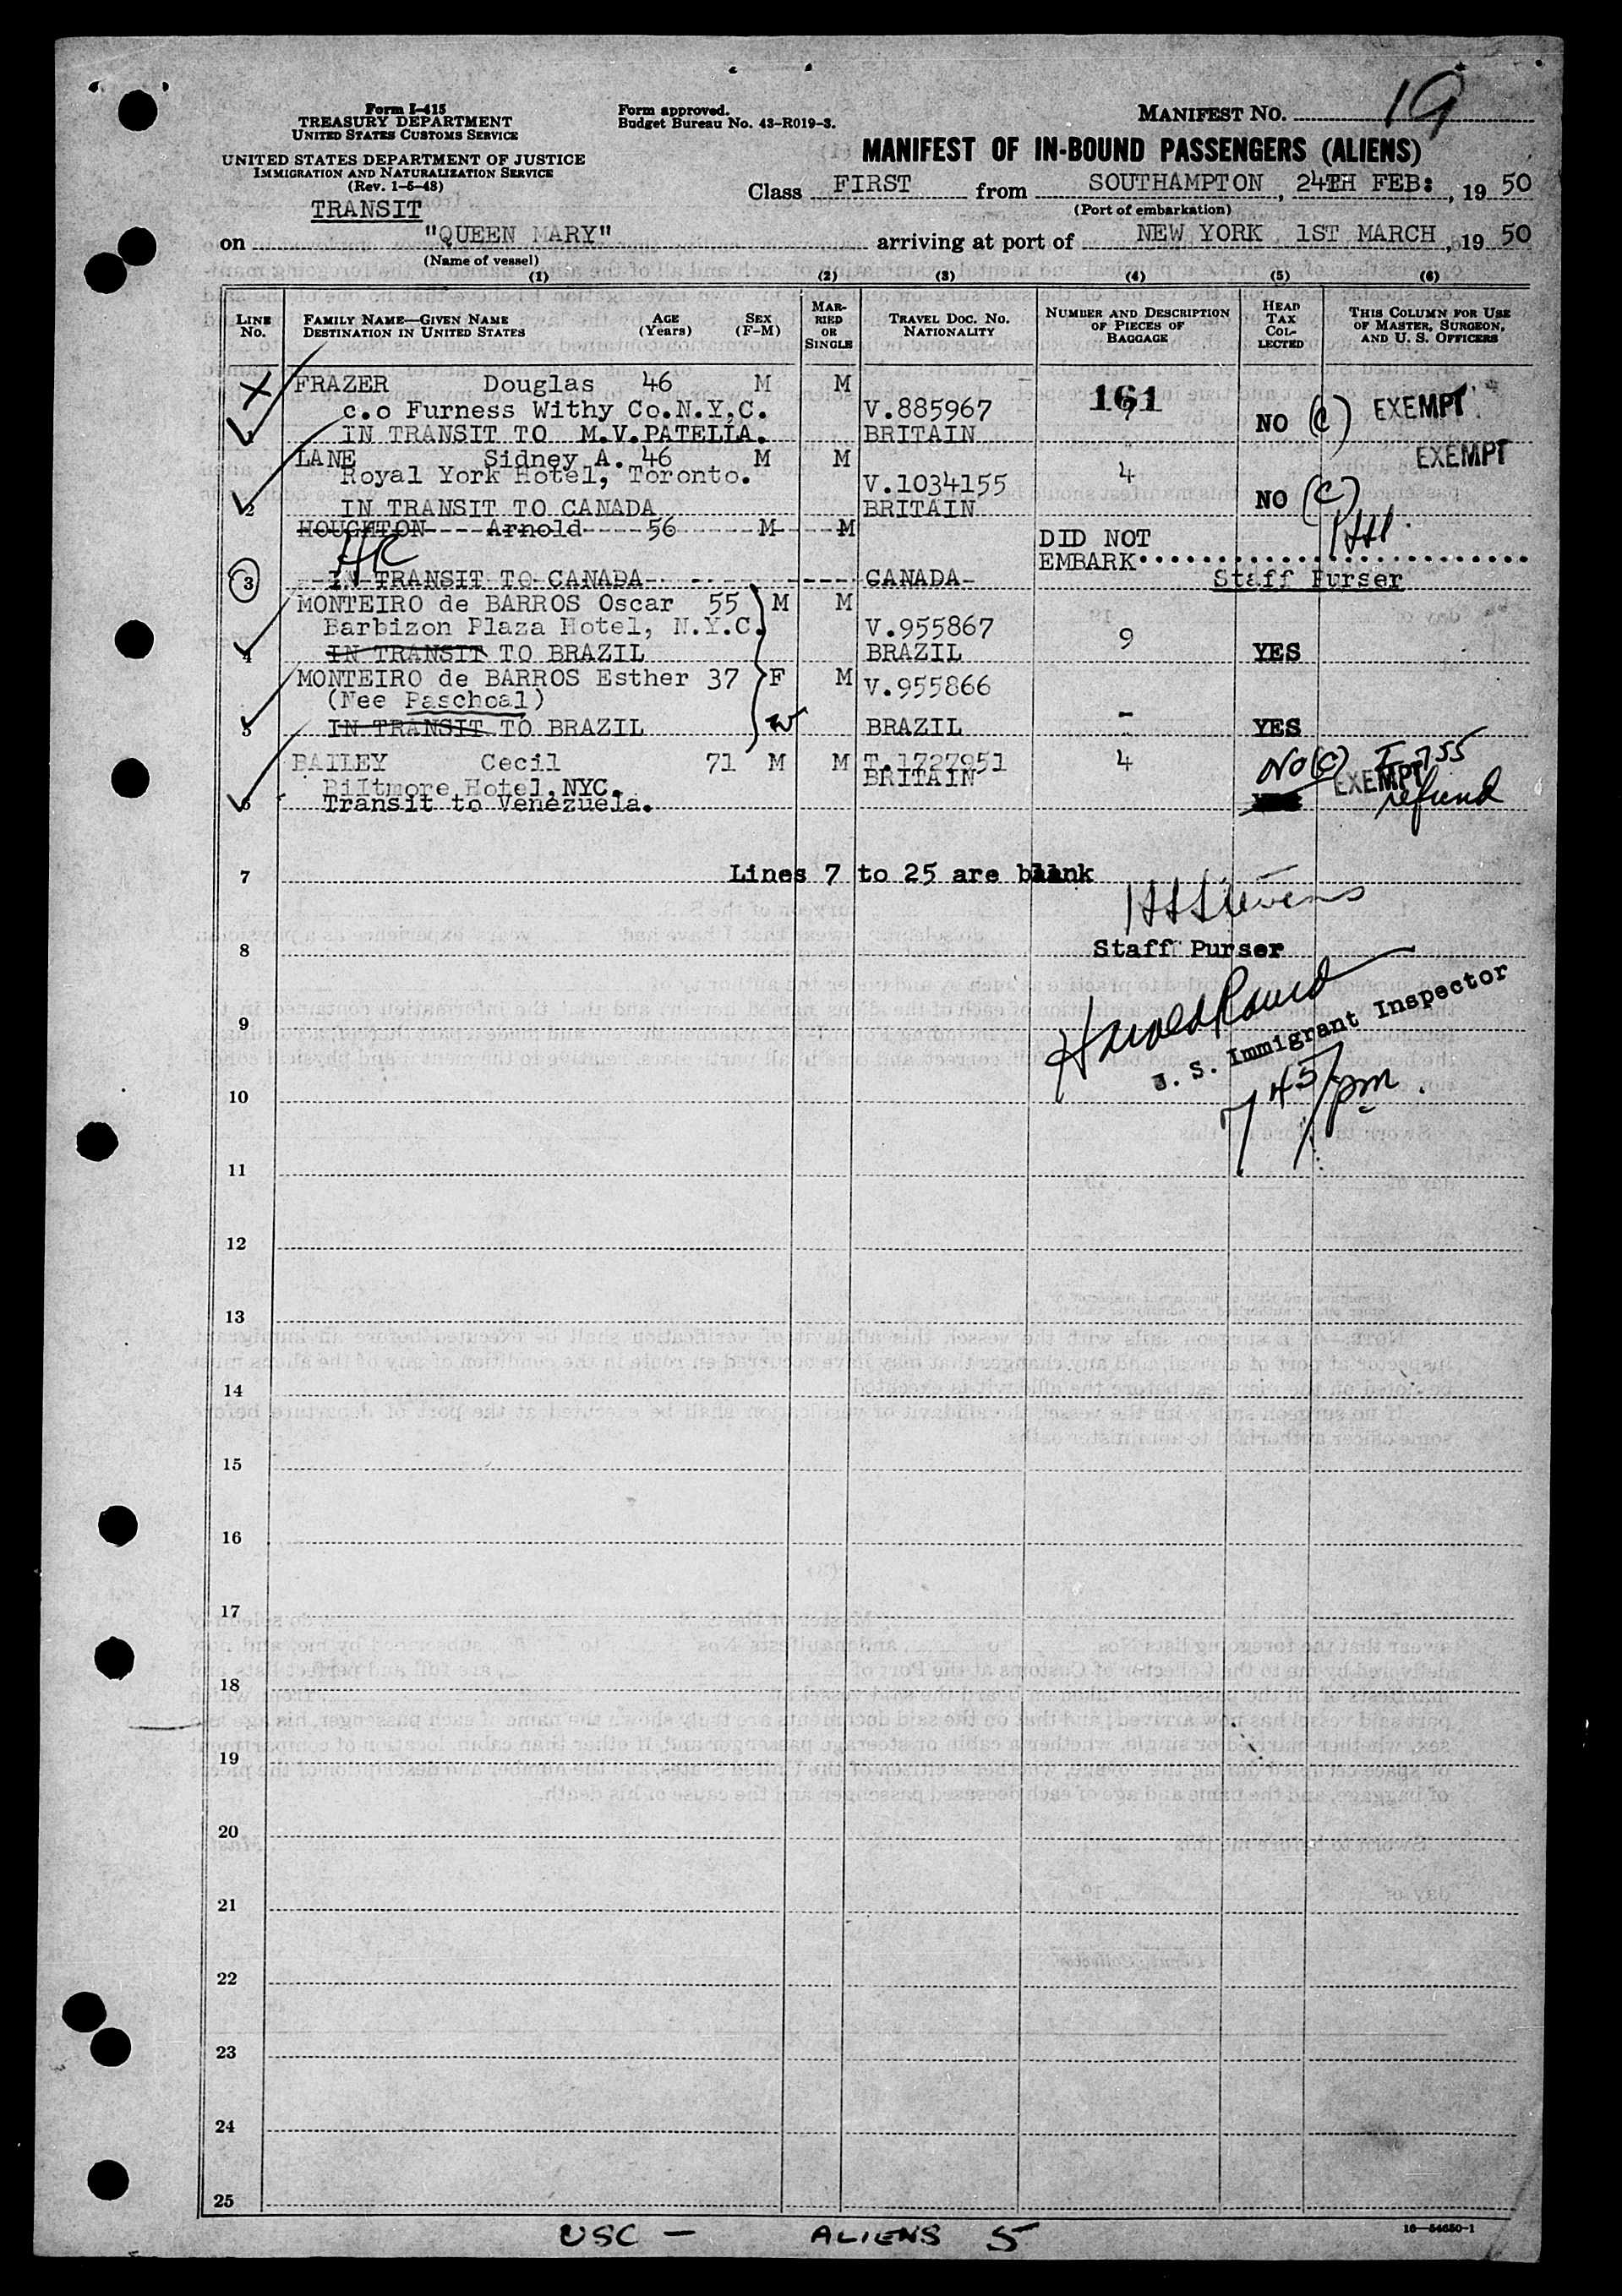 Form I-415
TREASURY DEPARTMENT
UNITED STATES CUSTOMS SERVICE
UNITED STATES DEPARTMENT OF JUSTICE
IMMIGRATION AND NATURALIZATION SERVICE
(Rev. 1-5-48)
TRANSIT
Form approved.
Budget Bureau No. 43-R019-3.
MANIFEST NO. 19
MANIFEST OF IN-BOUND PASSENGERS (ALIENS)
Class FIRST from SOUTHAMPTON, 24TH FEB:, 19 50
(Port of embarkation)
on "QUEEN MARY" arriving at port of NEW YORK 1ST MARCH, 19 50
(Name of vessel)
(1) (2) (3) (4) (5) (6)
LINE No. FAMILY NAME—GIVEN NAME DESTINATION IN UNITED STATES AGE (Years) SEX (F-M) MARRIED OR SINGLE TRAVEL DOC. NO. NATIONALITY NUMBER AND DESCRIPTION OF PIECES OF BAGGAGE HEAD TAX COLLECTED THIS COLUMN FOR USE OF MASTER, SURGEON, AND U. S. OFFICERS
X FRAZER Douglas 46 M M 161
c.o Furness Withy Co.N.Y.C. V.885967 7 NO (C) EXEMPT
IN TRANSIT TO M.V.PATELLA. BRITAIN
LANE Sidney A. 46 M M EXEMPT
Royal York Hotel, Toronto. V.1034155 4
2 IN TRANSIT TO CANADA BRITAIN NO (C)
HOUGHTON Arnold 56 M M DID NOT
EMBARK
3 IN TRANSIT TO CANADA CANADA Staff Purser
MONTEIRO de BARROS Oscar 55 M M
Barbizon Plaza Hotel, N.Y.C. V.955867 9
4 IN TRANSIT TO BRAZIL BRAZIL YES
MONTEIRO de BARROS Esther 37 F M V.955866
(Nee Paschoal)
5 IN TRANSIT TO BRAZIL W BRAZIL - YES
BAILEY Cecil 71 M M T.1727951 4 No(C) I-755
Biltmore Hotel,NYC. BRITAIN EXEMPT
6 Transit to Venezuela. refund
7 Lines 7 to 25 are blank
HHStevens
8 Staff Purser
9 Harold
U. S. Immigrant Inspector
10 7 45 pm
11
12
13
14
15
16
17
18
19
20
21
22
23
24
25
USC — ALIENS 5
16—54650-1